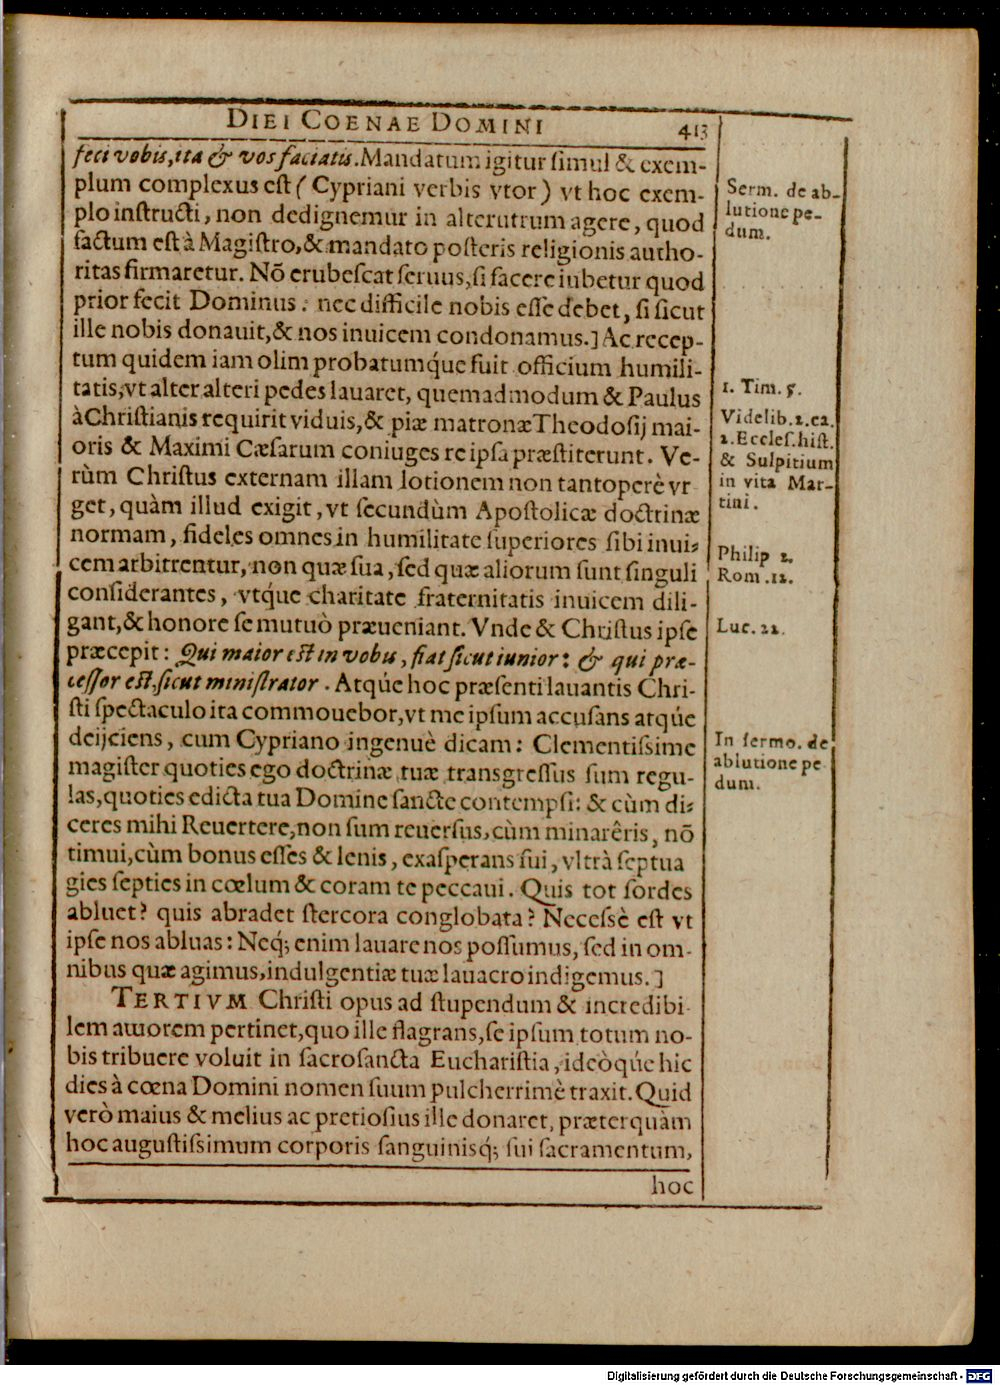 DIEI COENAE DOMINI 413
feci vobis, ita & vos faciatis. Mandatum igitur simul & exem-
plum complexus est (Cypriani verbis vtor) vt hoc exem-
plo instructi, non dedignemur in alterutrum agere, quod
factum est à Magistro, & mandato posteris religionis autho-
ritas firmaretur. Nõ erubescat seruus, si facere iubetur quod
prior fecit Dominus: nec difficile nobis esse debet, si sicut
ille nobis donauit, & nos inuicem condonamus.] Ac recep-
tum quidem iam olim probatumq́ue fuit officium humili-
tatis, vt alter alteri pedes lauaret, quemadmodum & Paulus
à Christianis requirit viduis, & piæ matronæ Theodosij mai-
oris & Maximi Cæsarum coniuges re ipsa præstiterunt. Ve-
rùm Christus externam illam lotionem non tantoperè vr
get, quàm illud exigit, vt secundùm Apostolicæ doctrinæ
normam, fideles omnes in humilitate superiores sibi inui-
cem arbitrentur, non quæ sua, sed quæ aliorum sunt singuli
considerantes, vtq́ue charitate fraternitatis inuicem dili-
gant, & honore se mutuò præueniant. Vnde & Christus ipse
præcepit: Qui maior est in vobis, fiat sicut iunior: & qui præ-
cessor est, sicut ministrator. Atq́ue hoc præsenti lauantis Chri-
sti spectaculo ita commouebor, vt me ipsum accusans atq́ue
deijciens, cum Cypriano ingenuè dicam: Clementissime
magister quoties ego doctrinæ tuæ transgressus sum regu-
las, quoties edicta tua Domine sancte contempsi: & cùm di-
ceres mihi Reuertere, non sum reuersus, cùm minarêris, nõ
timui, cùm bonus esses & lenis, exasperans fui, vltrà septua
gies septies in cœlum & coram te peccaui. Quis tot sordes
abluet? quis abradet stercora conglobata? Necessè est vt
ipse nos abluas: Neq́; enim lauare nos possumus, sed in om-
nibus quæ agimus, indulgentiæ tuæ lauacro indigemus.]
TERTIVM Christi opus ad stupendum & incredibi-
lem amorem pertinet, quo ille flagrans, se ipsum totum no-
bis tribuere voluit in sacrosancta Eucharistia, ideòq́ue hic
dies à cœna Domini nomen suum pulcherrimè traxit. Quid
verò maius & melius ac pretiosius ille donaret, præterquàm
hoc augustissimum corporis sanguinisq́; sui sacramentum,
hoc
Serm. de ab-
lutione pe-
dum.
1. Tim. 5.
Vide lib. 2. ca.
2. Eccles. hist.
& Sulpitium
in vita Mar-
tini.
Philip 2.
Rom. 12.
Luc. 22.
In sermo. de
ablutione pe
dum.
Digitalisierung gefördert durch die Deutsche Forschungsgemeinschaft - DFG